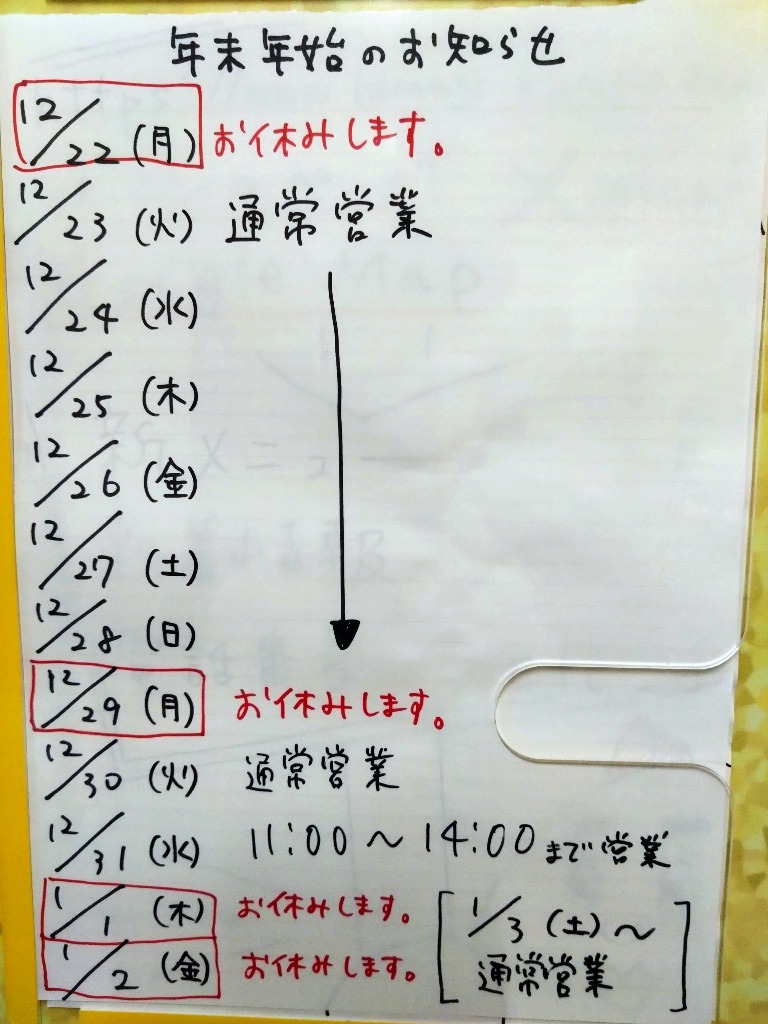 年末年始のお知らせ
12/22 (月) お休みします。
12/23 (火) 通常営業
12/24 (水)
12/25 (木)
12/26 (金)
12/27 (土)
12/28 (日)
12/29 (月) お休みします。
12/30 (火) 通常営業
12/31 (水) 11:00～14:00まで営業
1/1 (木) お休みします。
1/2 (金) お休みします。
[1/3 (土)～
通常営業]